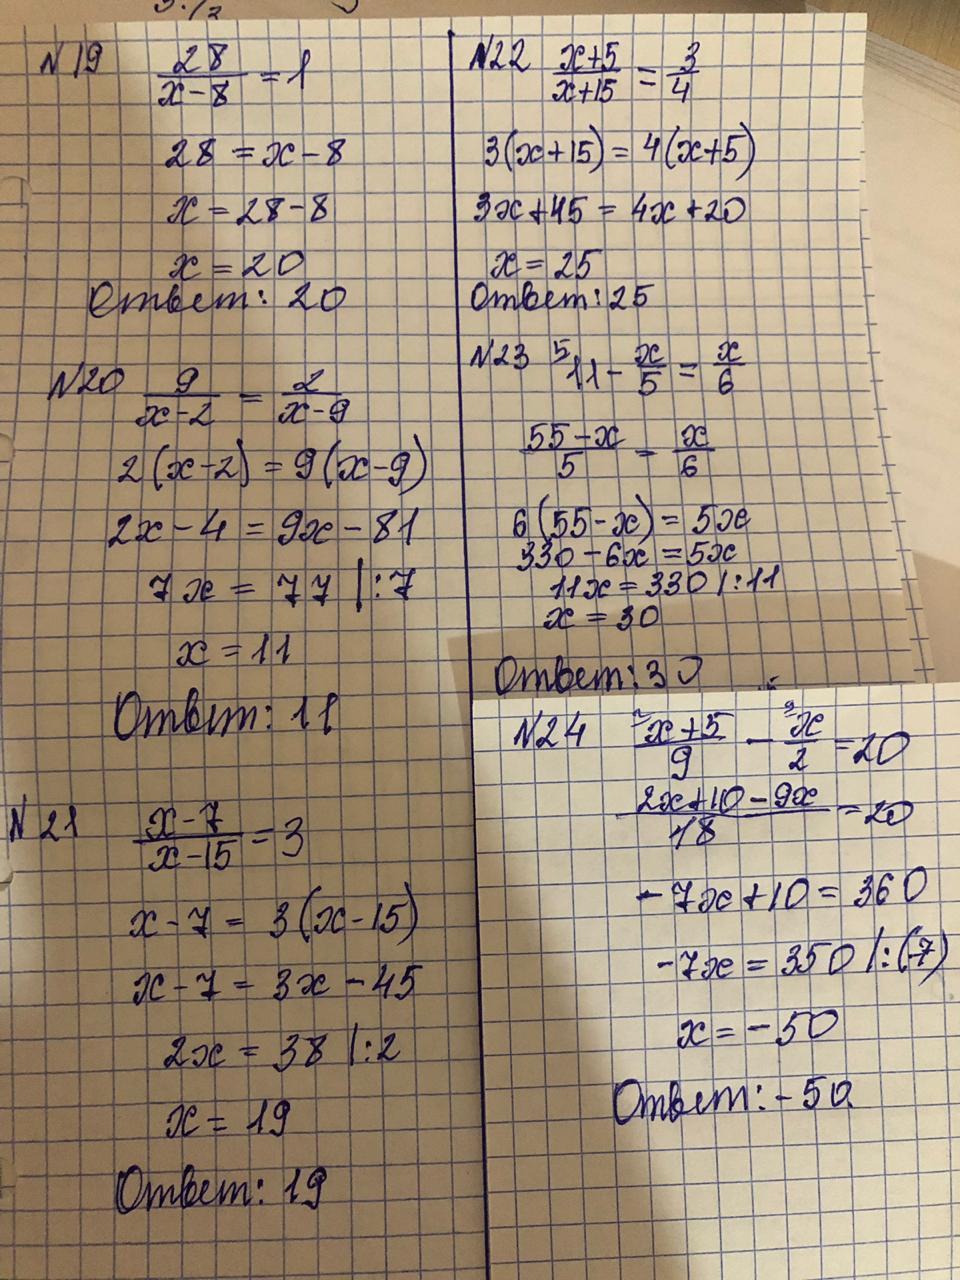 N19 28/(x-8) = 1
28 = x - 8
x = 28 - 8
x = 20
Ответ: 20
N20 9/(x-2) = 2/(x-9)
2(x-2) = 9(x-9)
2x - 4 = 9x - 81
7x = 77 |:7
x = 11
Ответ: 11
N21 (x-7)/(x-15) = 3
x - 7 = 3(x-15)
x - 7 = 3x - 45
2x = 38 |:2
x = 19
Ответ: 19
N22 (x+5)/(x+15) = 3/4
3(x+15) = 4(x+5)
3x+45 = 4x+20
x = 25
Ответ: 25
N23 ⁵11 - x/5 = x/6
(55-x)/5 = x/6
6(55-x) = 5x
330 - 6x = 5x
11x = 330 |:11
x = 30
Ответ: 30
N24 ²(x+5)/9 - ⁹x/2 = 20
(2x+10-9x)/18 = 20
-7x+10 = 360
-7x = 350 |:(-7)
x = -50
Ответ: -50.